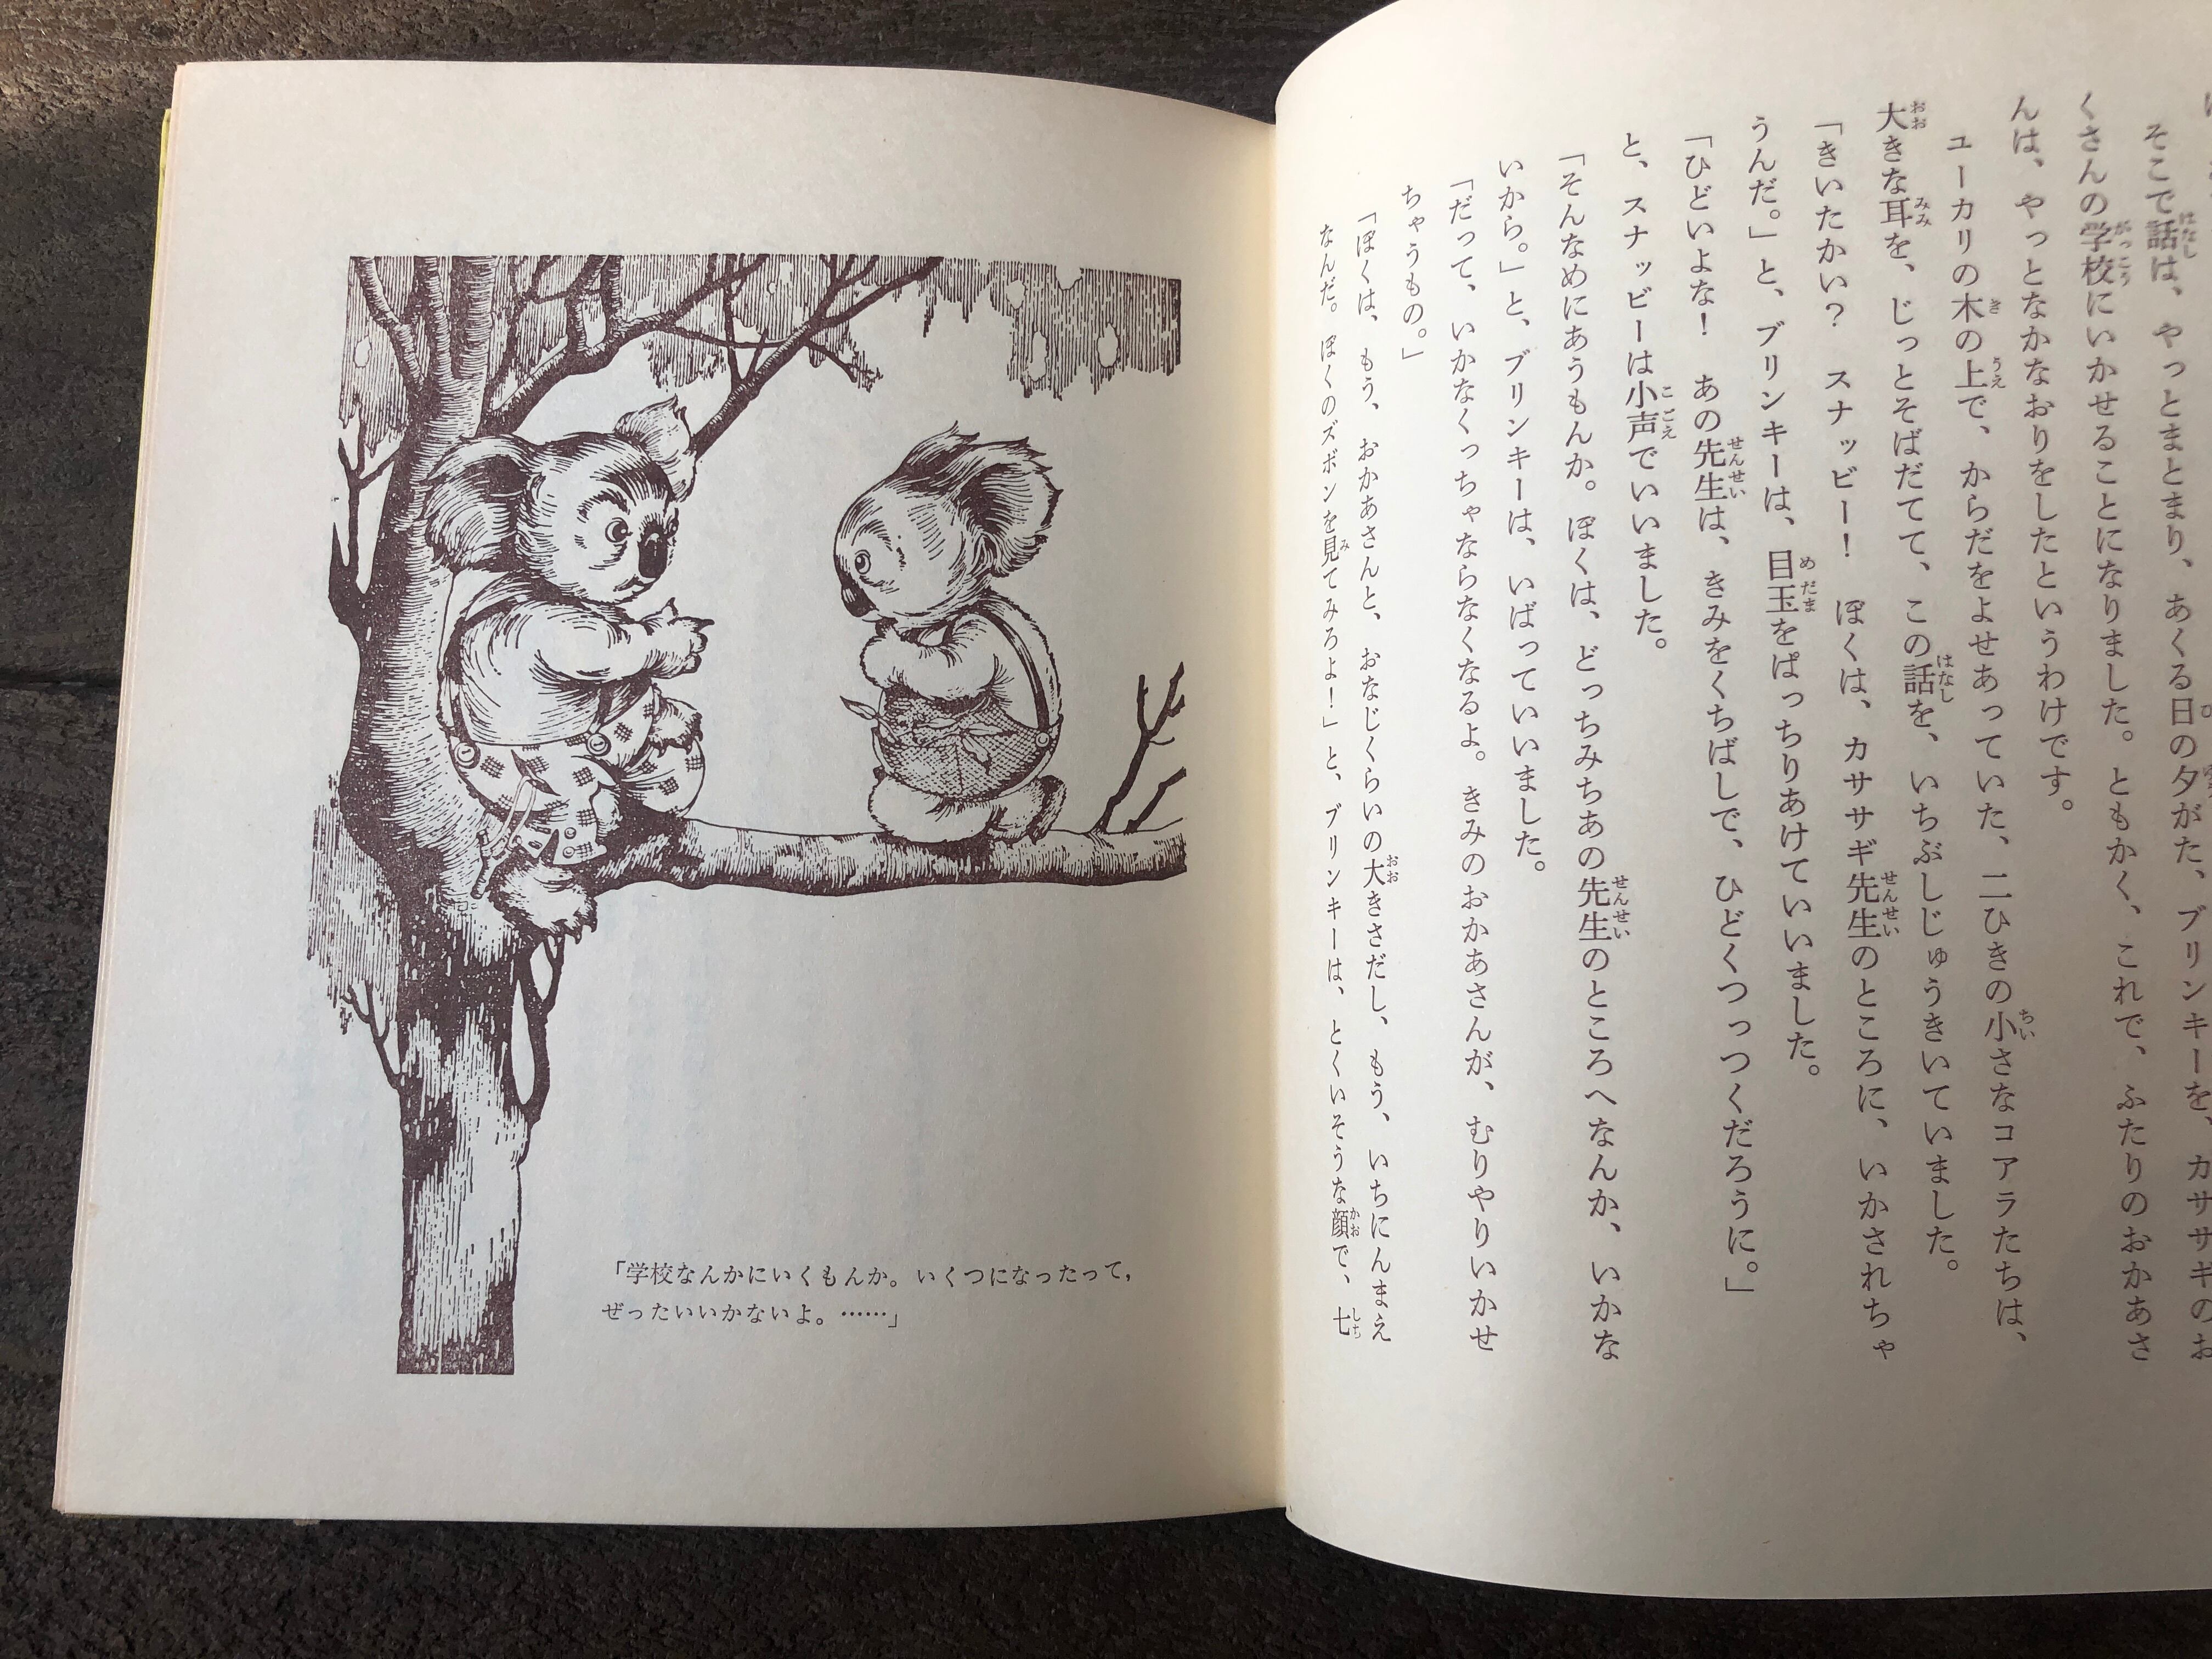 そこで話は、やっとまとまり、あくる日の夕がた、ブリンキーを、カササギのお
くさんの学校にいかせることになりました。ともかく、これで、ふたりのおかあさ
んは、やっとなかなおりをしたというわけです。
ユーカリの木の上で、からだをよせあっていた、二ひきの小さなコアラたちは、
大きな耳を、じっとそばだてて、この話を、いちぶしじゅうきいていました。
「きいたかい? スナッビー! ぼくは、カササギ先生のところに、いかされちゃ
うんだ。」と、ブリンキーは、目玉をぱっちりあけていいました。
「ひどいよな! あの先生は、きみをくちばしで、ひどくつっつくだろうに。」
と、スナッビーは小声でいいました。
「そんなめにあうもんか。ぼくは、どっちみちあの先生のところへなんか、いかな
いから。」と、ブリンキーは、いばっていいました。
「だって、いかなくっちゃならなくなるよ。きみのおかあさんが、むりやりいかせ
ちゃうもの。」
「ぼくは、もう、おかあさんと、おなじくらいの大きさだし、もう、いちにんまえ
なんだ。ぼくのズボンを見てみろよ!」と、ブリンキーは、とくいそうな顔で、七
「学校なんかにいくもんか。いくつになったって,
ぜったいいかないよ。……」